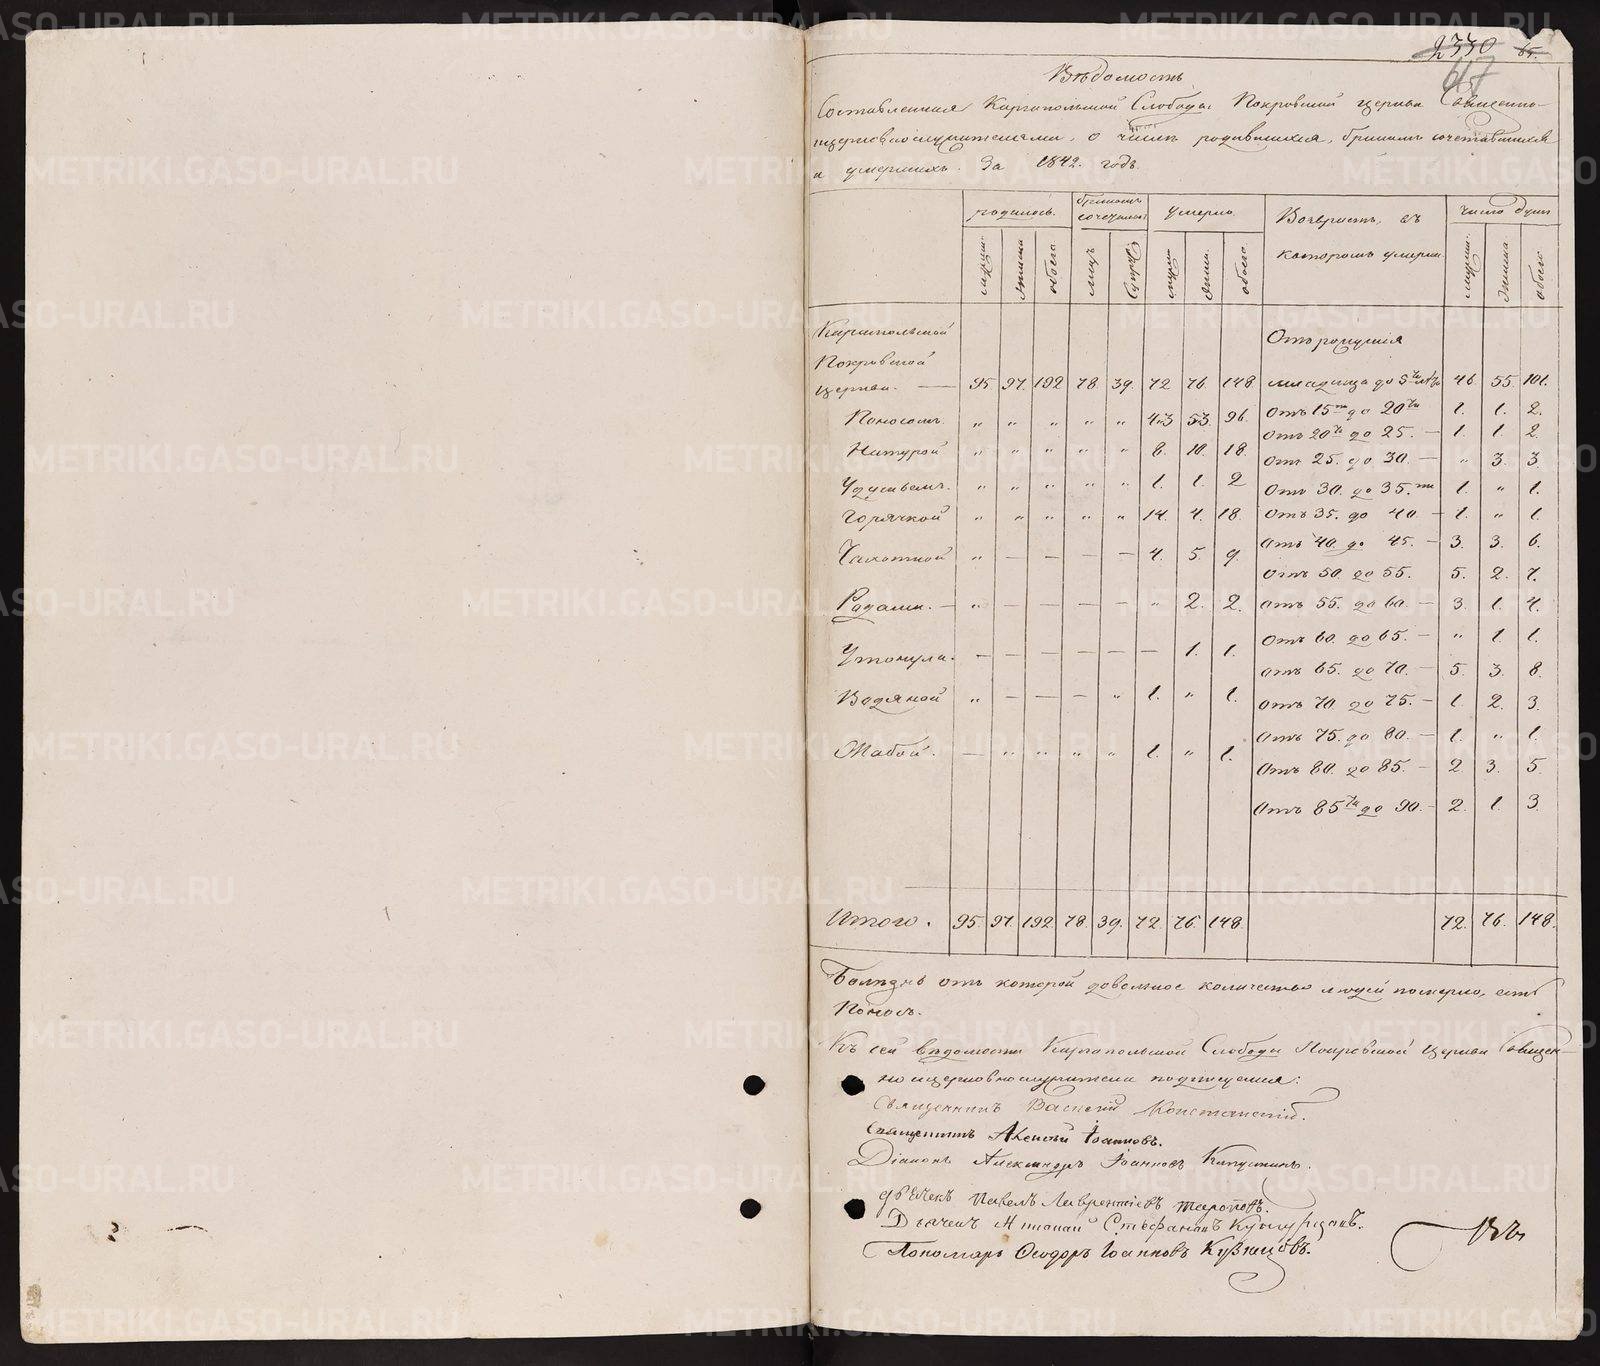 2330 65.
617
Вѣдомость
Составленная Каргопольской Слободы Покровской церкви Священно-
церковнослужителями, о числѣ родившихся, бракомъ сочетавшихся
и умершихъ. За 1842. годъ.
родилось. бракомъ сочеталось умерло. Возрастъ, въ которомъ умерли число душъ
мужеск. женска обоего лицъ Супр. мужеск женск. обоего мужеск. женска обоего
Каргопольской
Покровской Отъ рожденія
церкви. — 95 97. 192 78. 39. 72 76. 148 младенца до 5ти лѣт 46 55. 101.
Поносомъ. „ „ „ „ „ 43 53. 96. Отъ 15ти до 20ти 1. 1. 2.
Отъ 20ти до 25. — 1. 1. 2.
Натурой „ „ „ „ „ 8. 10. 18. Отъ 25. до 30. — „ 3. 3.
Удушьемъ. „ „ „ „ „ 1. 1. 2 Отъ 30. до 35.ти 1. „ 1.
Горячкой „ „ „ „ „ 14. 4. 18. Отъ 35. до 40. — 1. „ 1.
Отъ 40. до 45. — 3. 3. 6.
Чахоткой „ — — — — 4. 5. 9.
Отъ 50. до 55. 5. 2. 7.
Родами. — „ — — — — „ 2. 2. Отъ 55. до 60. — 3. 1. 4.
Отъ 60. до 65. — „ 1. 1.
Утонула. — — — — — — 1. 1.
Отъ 65. до 70. — 5. 3. 8.
Водяной „ — — — „ 1. „ 1. Отъ 70. до 75. — 1. 2. 3.
Отъ 75. до 80. — 1. „ 1.
Жабой. — „ „ „ „ 1. „ 1.
Отъ 80. до 85. — 2. 3. 5.
Отъ 85ти до 90. — 2. 1. 3.
Итого. 95. 97. 192 78. 39. 72. 76. 148. 72. 76. 148.
Болѣзнь отъ которой довольное количество людей померло, есть
Поносъ.
Къ сей вѣдомости Каргопольской Слободы Покровской церкви Священ-
но церковнослужители подписуемся:
Священникъ Василій
Священникъ Алексій Іоанновъ.
Діаконъ Александръ Іоанновъ
дьячекъ Павелъ Лаврентіевъ
Дьячекъ Стефановъ
Пономарь Ѳеодоръ Іоанновъ Кузнецовъ.
METRIKI.GASO-URAL.RU